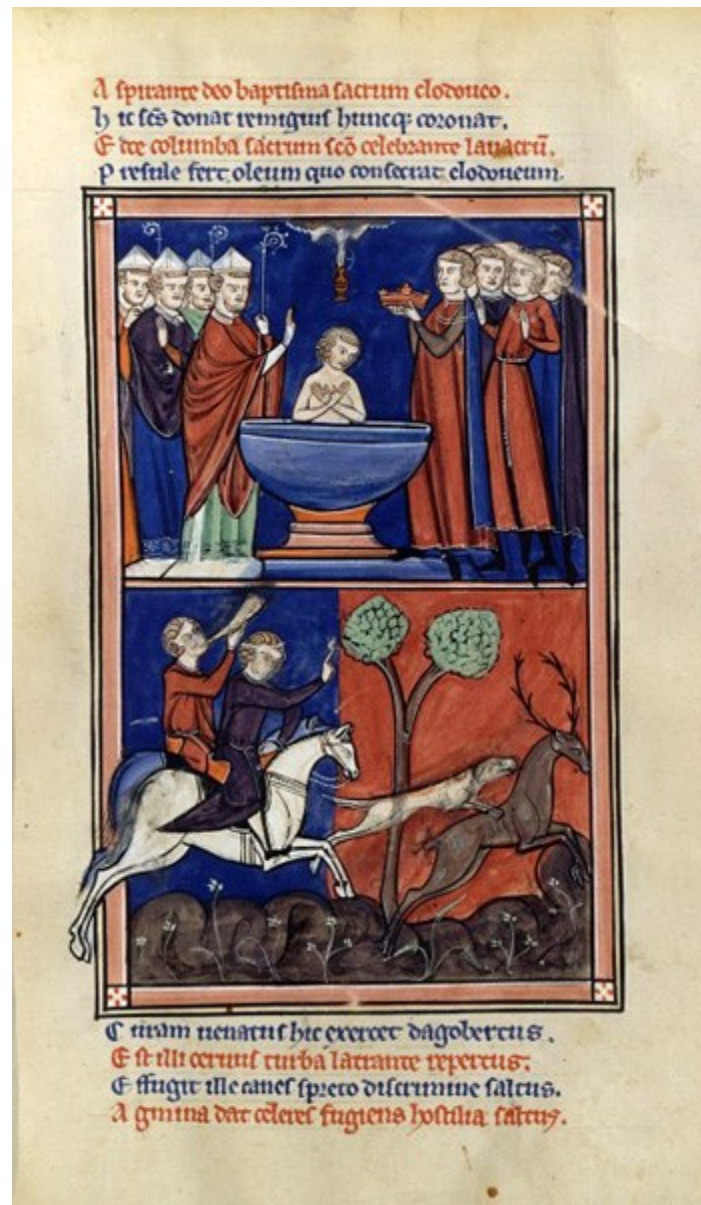 A spirante deo baptisma sacrum clodoueo.
h ic scs̄ donat remigius huncq; coronat.
E cce columba sacrum scō celebrante lauacrū.
P resule fert oleum quo consecrat clodoueum.
C uram uenatus hic exercet dagobertus.
E st illi ceruus turba latrante repertus.
E ffugit ille canes spreto discrimine saltus.
A gmina dat celeres fugiens hostilia saltus.